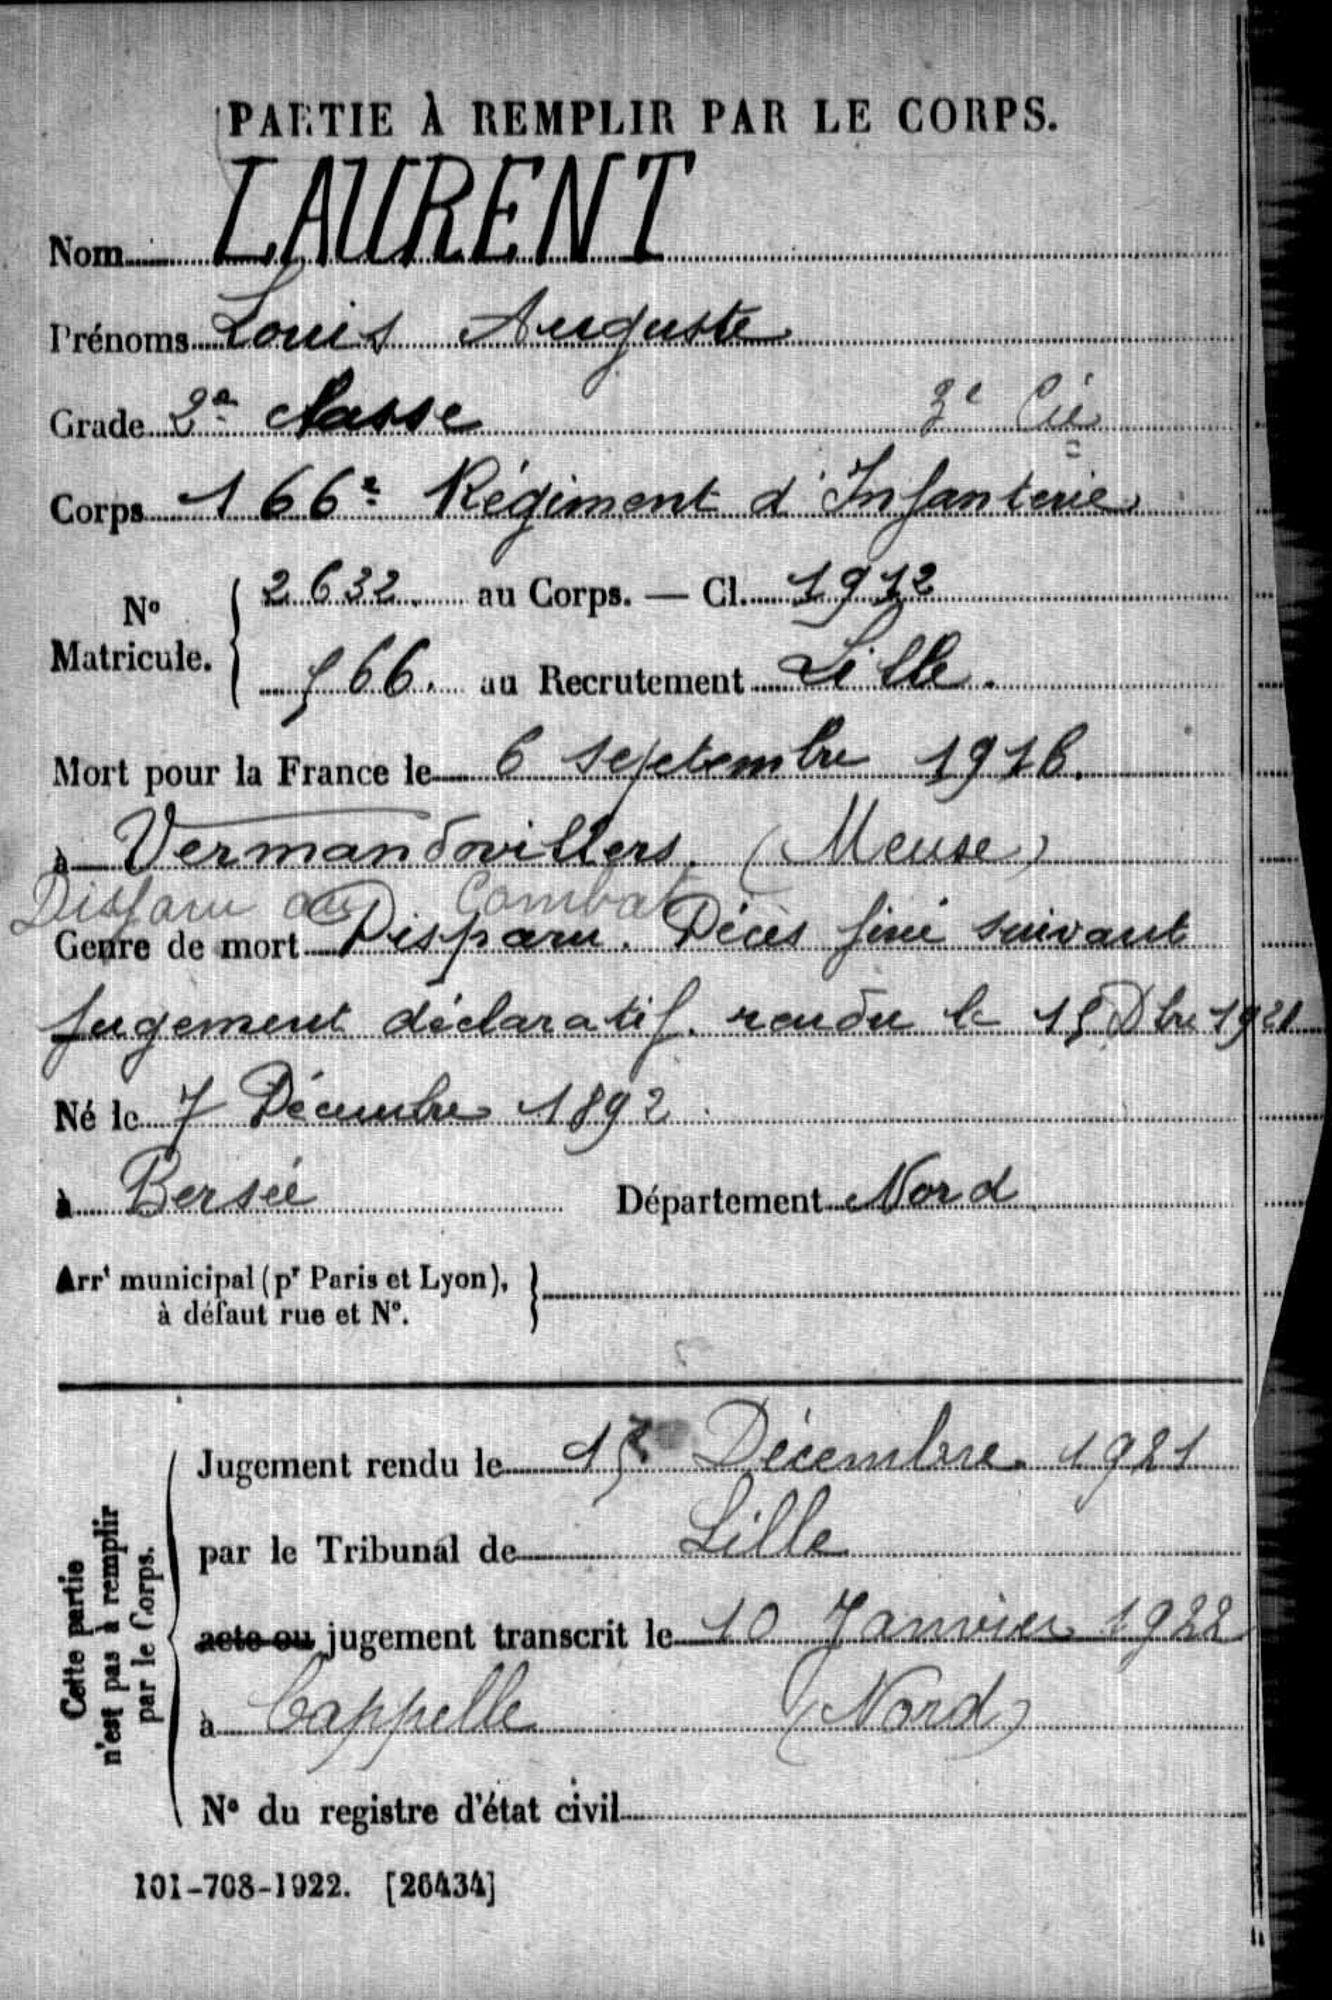 PARTIE À REMPLIR PAR LE CORPS.
Nom LAURENT
Prénoms Louis Auguste
Grade 2e classe 3e Cie
Corps 166e Régiment d'Infanterie
N° Matricule. 2632. au Corps. — Cl. 1912
566. au Recrutement Lille.
Mort pour la France le 6 septembre 1916.
à Vermandovillers. (Meuse)
Disparu au Combat
Genre de mort Disparu. Décès fixé suivant
jugement déclaratif. rendu le 15 Dbre 1921
Né le 7 Décembre 1892.
à Bersée Département Nord
Arrt municipal (pr Paris et Lyon),
à défaut rue et N°.
Cette partie
n'est pas à remplir
par le Corps.
Jugement rendu le 15 Décembre 1921
par le Tribunal de Lille
acte ou jugement transcrit le 10 Janvier 1922
à Cappelle (Nord)
N° du registre d'état civil
101-708-1922. [26434]